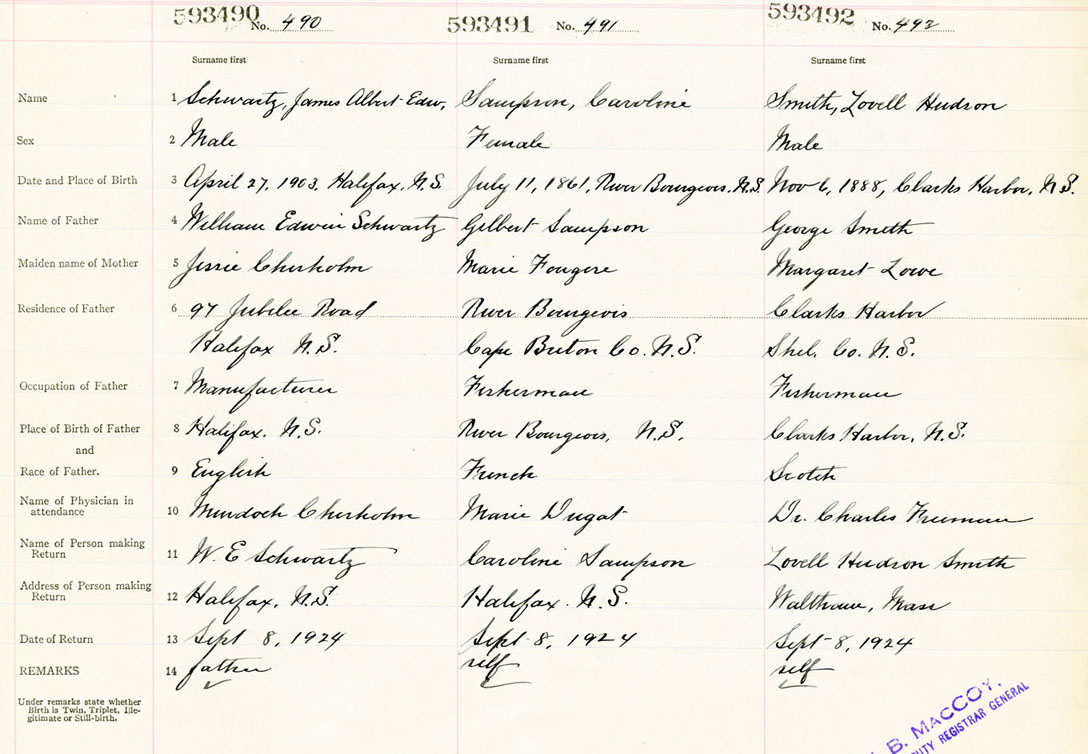 593490 No. 490 593491 No. 491 593492 No. 492
Surname first Surname first Surname first
Name 1 Schwartz, James Albert Edw. Sampson, Caroline Smith, Lovell Hudson
Sex 2 Male Female Male
Date and Place of Birth 3 April 27, 1903, Halifax, N.S. July 11, 1861, River Bourgeois, N.S. Nov 6, 1888, Clarks Harbor, N.S.
Name of Father 4 William Edwin Schwartz Gilbert Sampson George Smith
Maiden name of Mother 5 Jessie Chisholm Marie Fougere Margaret Lowe
Residence of Father 6 97 Jubilee Road River Bourgeois Clarks Harbor
Halifax N.S. Cape Breton Co. N.S. Shel. Co. N.S.
Occupation of Father 7 Manufacturer Fisherman Fisherman
Place of Birth of Father 8 Halifax. N.S. River Bourgeois, N.S. Clarks Harbor, N.S.
and
Race of Father. 9 English French Scotch
Name of Physician in
attendance 10 Murdoch Chisholm Marie Dugat Dr. Charles Freeman
Name of Person making
Return 11 W. E Schwartz Caroline Sampson Lovell Hudson Smith
Address of Person making
Return 12 Halifax, N.S. Halifax. N.S. Waltham, Mass
Date of Return 13 Sept 8, 1924 Sept 8, 1924 Sept 8, 1924
REMARKS 14 father self self
Under remarks state whether
Birth is Twin, Triplet, Ille-
gitimate or Still-birth.
B. MACCOY,
UTY REGISTRAR GENERAL